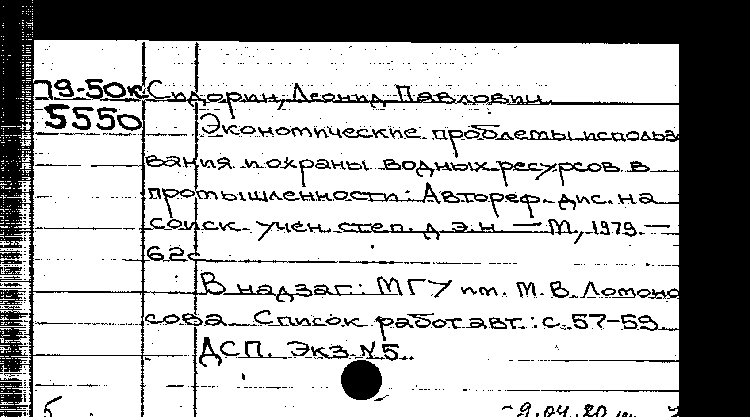 79-50к Сидорин, Леонид Павлович.
5550 Экономические проблемы использо
вания и охраны водных ресурсов в
промышленности: Автореф. дис. на
соиск. учен. степ. д.э.н. — М., 1979. —
62с
В надзаг: МГУ им. М.В. Ломоно
сова. Список работ авт.: с. 57-59.
ДСП. Экз N5.